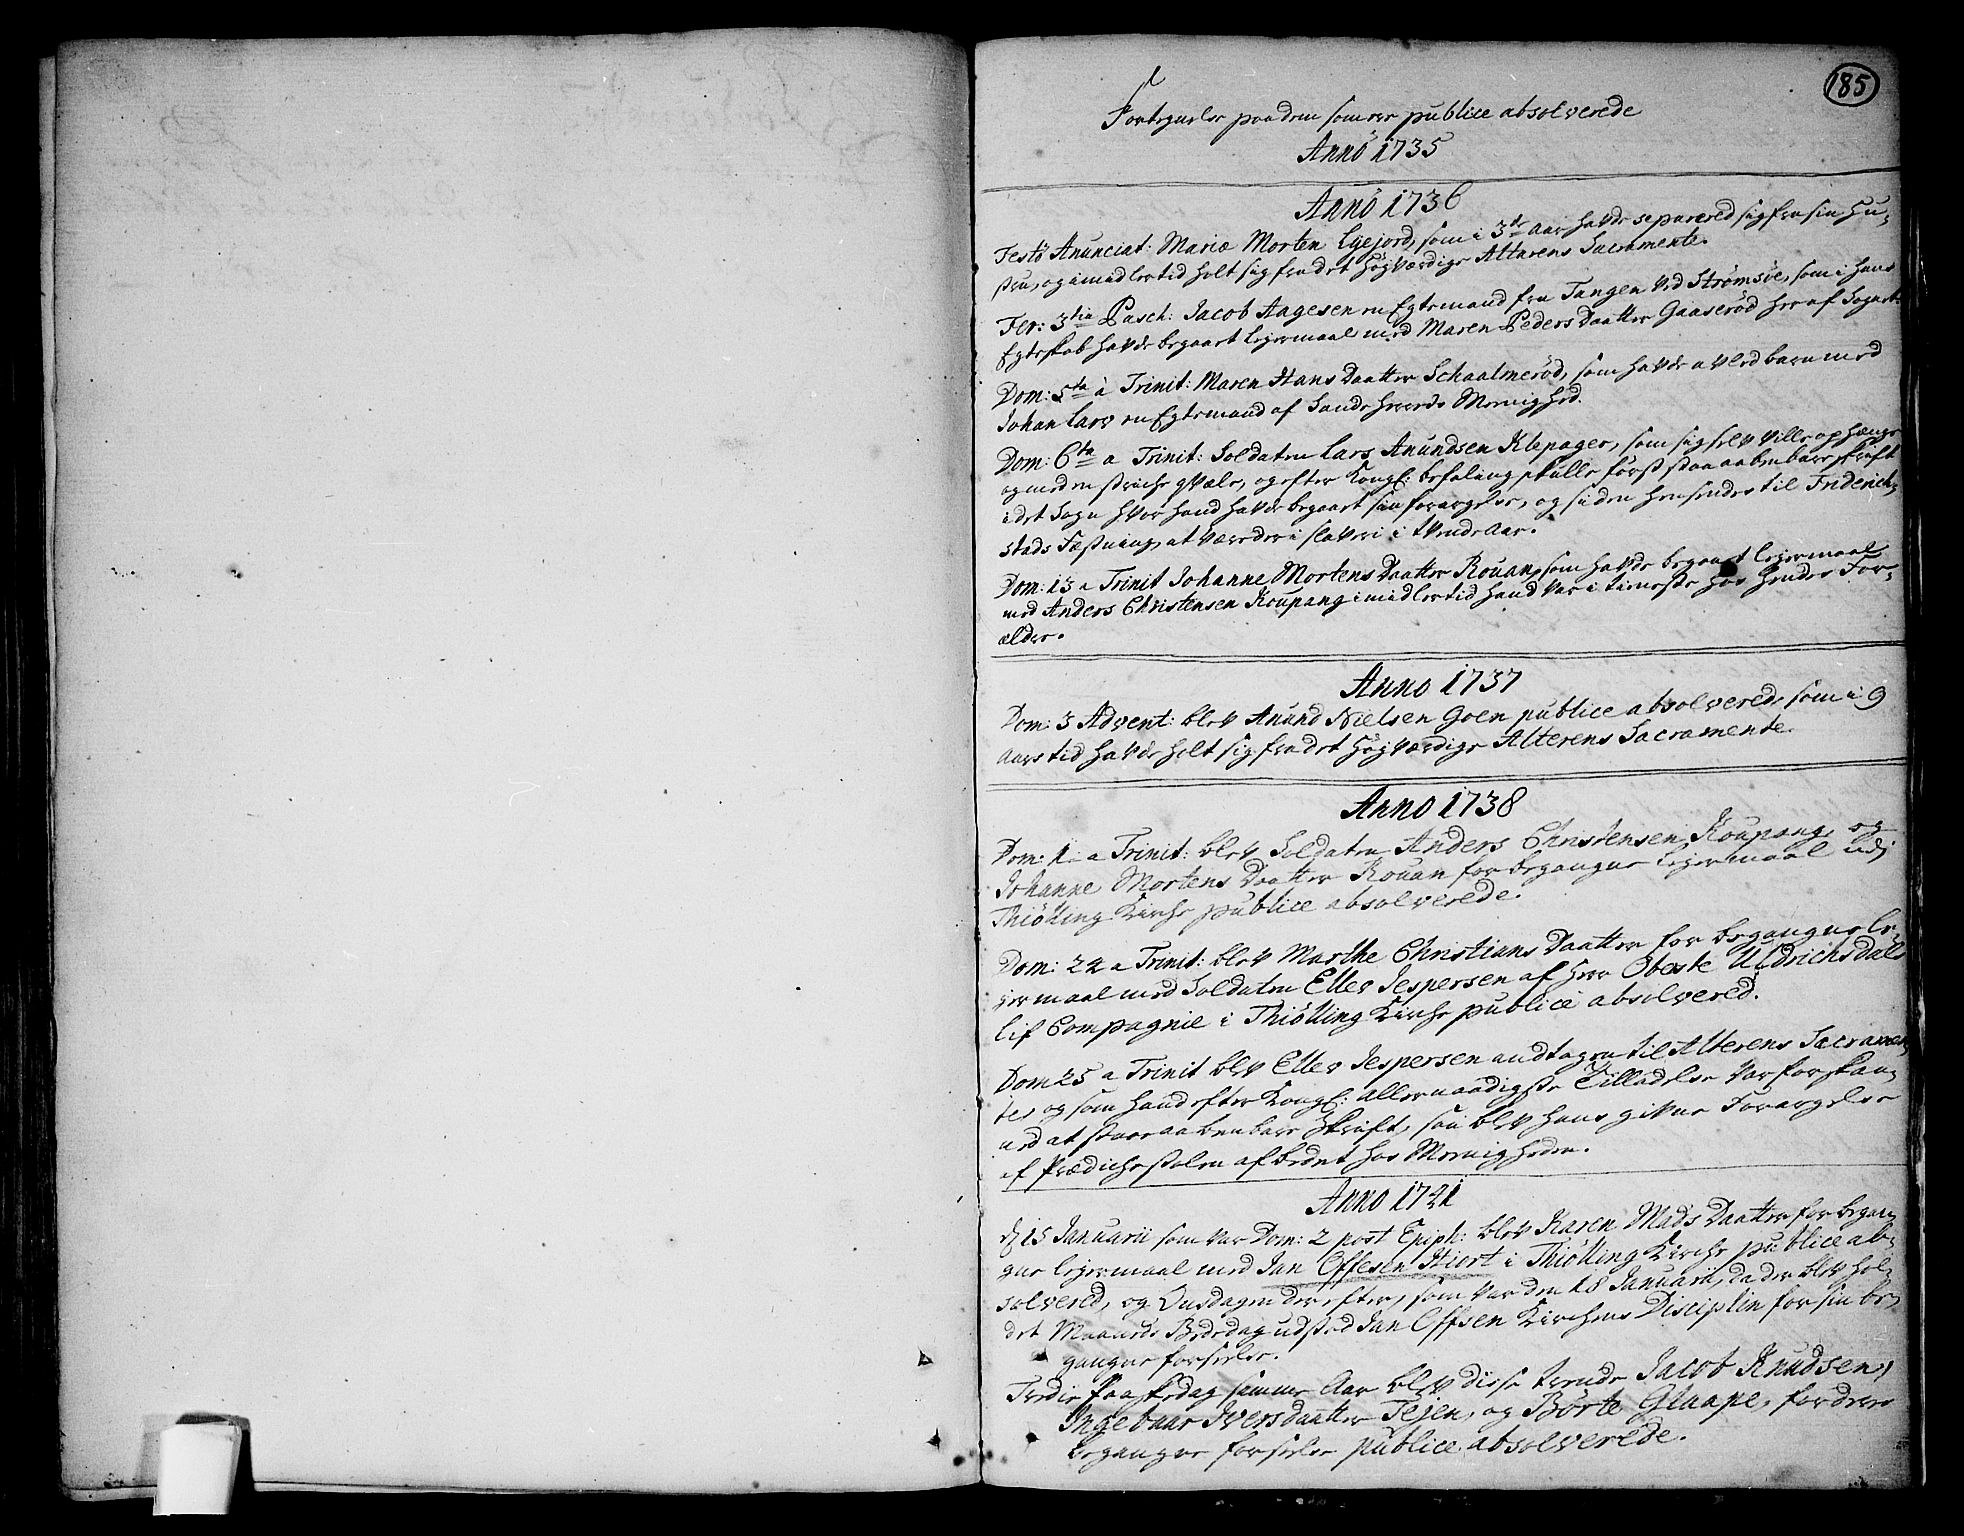 185
Fortegnelse paa dem som ere publice absolverede
Anno 1735
Anno 1736
Festo Anunciat: Mariæ Morten Eyejord, som i 3de Aar hafde separered sig fra sin Hu-
stru, og imidlertid holt sig fra det Høyværdige Altarens Sacramente.
Fer: 3tia Pasch: Jacob Aagesen en Egtemand fra Tangen ved Strømsøe, som i hans
Egteskab hafde begaaet lejermaal med Maren Peders Daatter Gaaserød her af Sognet.
Dom: 5ta à Trinit: Maren Hans Daatter Schaalmerød, som hafde avled barn med
Johan Lars en Egtemand af Sandeherreds Menighed.
Dom: 6ta a Trinit: Soldaten Lars Anundsen Klepager, som sig selv ville ophænge
og med en striche qvæle, og efter Kongl: befaling skulle først staa aabenbare skrift
i det Sogn hvor hand hafde begaaet sin forargelse, og siden hensendes til Friderich-
stads Fæstning, at være der i slaveri i tvende Aar.
Dom: 13 a Trinit Johanne Mortens Daatter Rouan, som hafde begaaet lejermaal
med Anders Christensen Koupang imidlertid hand var i tieneste hos hendes For-
ældre.
Anno 1737
Dom: 3 Advent: blev Anund Nielsen Goen publice absolvered, som i 9
Aars tid hafde holt sig fra det Høyværdige Alterens Sacramente.
Anno 1738
Dom: 1 a Trinit: blev Soldaten Anders Christensen Koupang, og
Johanne Mortens Daatter Rouan for begangne lejermaal udj
Thiølling Kirche publice absolverede.
Dom: 22 a Trinit: blev Marthe Christians Daatter for begangne le-
jermaal med Soldaten Ellev Jespersen af Herr Obeste Uldrichsdals
lif Compagnie i Thiølling Kirche publice absolvered.
Dom 25 a Trinit blev Ellev Jespersen andtagen til Alterens Sacramen-
tes og som hand efter Kongl: allernaadigste Tilladelse var forskaa-
ned at staae aabenbare Skrift, saa blev hans givne Forargelse
af Prædichestolen afbedet hos Menigheden.
Anno 1741
d 15 Januarii som var Dom: 2 post Epiph: blev Karen Mads Daatter for began-
gne lejermaal med Jan Offesen Hiort i Thiølling Kirche publice ab-
solvered, og Onsdagen derefter, som var den 18 Januarii, da der blev hol-
det Maaneds Bededag udstod Jan Offsen Kirchens Disciplin for sin be-
gangne forseelse.
Tredie Paaskedag samme Aar blev disse trende Jacob Knudsen,
Ingebaar Ivers daatter Tejen, og Børte Glaape, for deres
begangne forseelse publice absolverede.